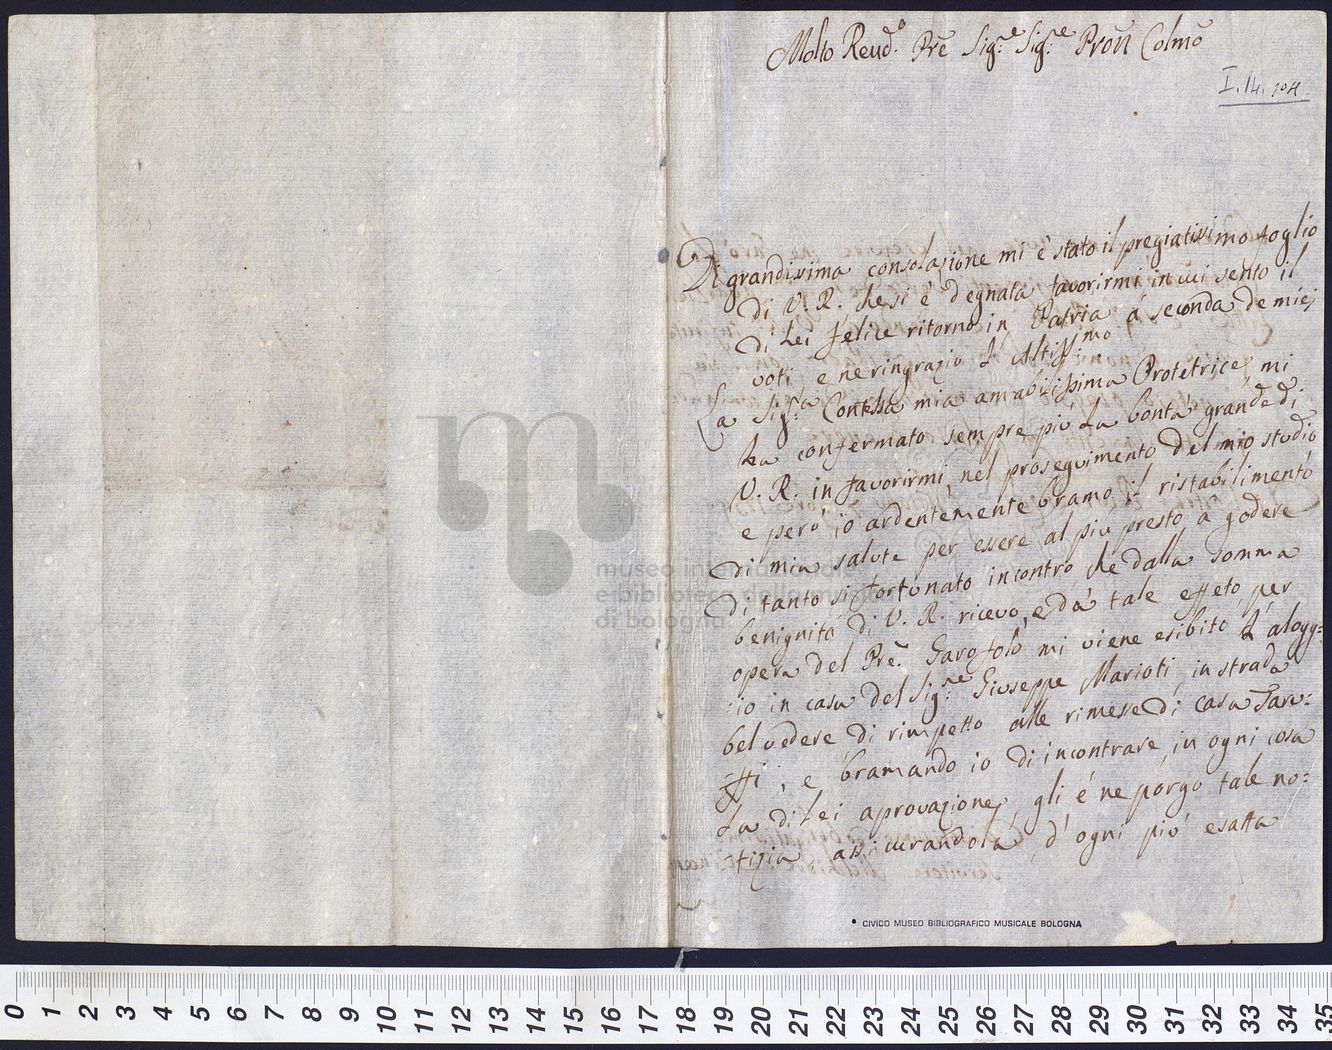 Molto Reud.º Prē Sig.re Sig.re Pron Colmō
I.14.104
Di grandissima consolazione mi è stato il pregiatissimo foglio
di V. R. che si è degnata favorirmi in cui sento il
di Lei felice ritorno in Patria à seconda de miej
voti, e ne ringrazio L'Altissimo
La Sig.ra Contessa mia amabilissima Protetrice, mi
ha confermato sempre più La bontà grande di
V. R. in favorirmi, nel proseguimento del mio studio
e però io ardentemente bramo il ristabilimento
di mia salute per essere al più presto à godere
di tanto si fortunato incontro che dalla somma
benignità di V. R. ricevo, e dà tale effeto per
opera del Prē. Garofolo mi viene esibito L'alogg=
:io in casa del Sig.re Giuseppe Marioti in strada
bel vedere di rimpetto alle rimese di Casa Taru:
:ffi, e bramando io di incontrare in ogni cosa
La di Lei aprovazione, gli é ne porgo tale no=
:tizia assicurandola d'ogni più esatta
museo internazionale
e biblioteca della musica
di bologna
• CIVICO MUSEO BIBLIOGRAFICO MUSICALE BOLOGNA
0 1 2 3 4 5 6 7 8 9 10 11 12 13 14 15 16 17 18 19 20 21 22 23 24 25 26 27 28 29 30 31 32 33 34 35